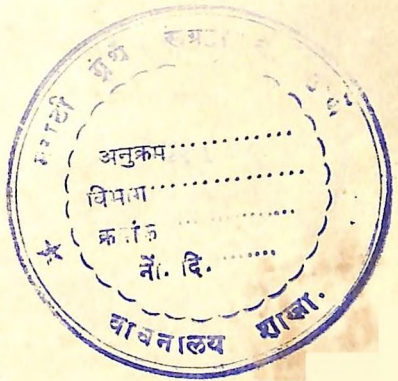 मराठी ग्रंथ
अनुक्रम
विभाग
क्रमांक
नों. दि.
वाचनालय शाखा.